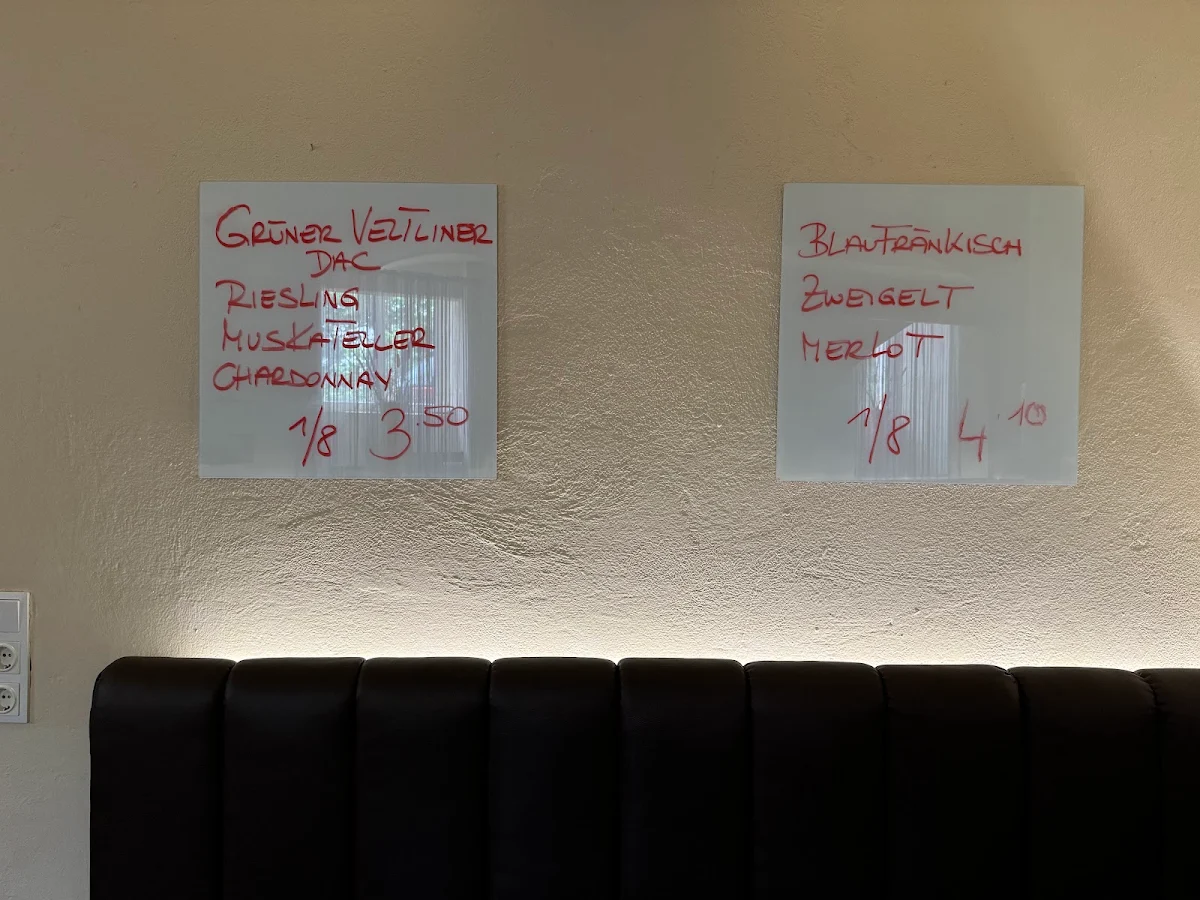 GRÜNER VELTLINER
DAC
RIESLING
MUSKATELLER
CHARDONNAY
1/8 3.50
BLAUFRÄNKISCH
ZWEIGELT
MERLOT
1/8 4.10